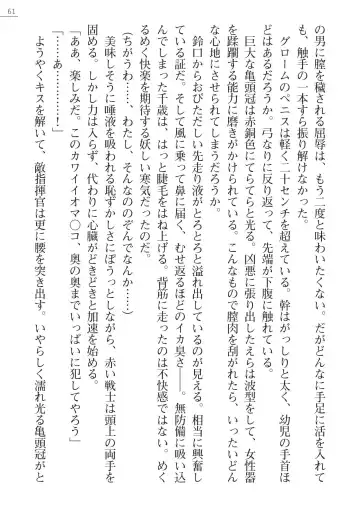 61
の男に膣を穢される屈辱は、もう二度と味わいたくない。だがどんなに手足に活を入れて
も、触手の一本すら振り解けなかった。
グロームのペニスは軽く二十センチを超えている。幹はがっしりと太く、幼児の手首ほ
どはあるだろうか。弓なりに反り返って、先端が下腹に触れている。
巨大な亀頭冠は赤銅色にてらてらと光る。凶悪に張り出したえらは波型をして、女性器
を蹂躙する能力に磨きがかけられている。こんなもので膣肉を刮がれたら、いったいどん
な心地にさせられてしまうだろうか。
鈴口からおびただしい先走り液がとろとろと溢れ出しているのが見える。相当に興奮し
ている証だ。そして風に乗って鼻に届く、むせ返るほどのイカ臭さ――。無防備に吸い込
んでしまった千歳は、はっと睫毛をはね上げる。背筋に走ったのは不快感ではない。めく
るめく快楽を期待する妖しい寒気だったのだ。
（ちがうわ……わたし、そんなのぞんでなんか……）
美味しそうに唾液を吸われる恥ずかしさにぼうっとしながら、赤い戦士は頭上の両手を
固める。しかし力は入らず、代わりに心臓がどきどきと加速を始める。
「ああ、楽しみだ。このカワイイオマ〇コ、奥の奥までいっぱいに犯してやろう」
「……あ…………！」
ようやくキスを解いて、敵指揮官は更に腰を突き出す。いやらしく濡れ光る亀頭冠がと